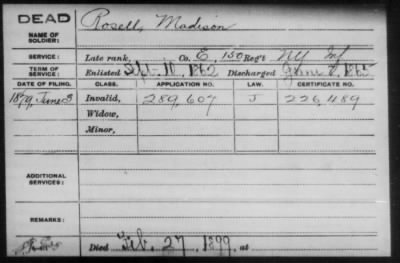 DEAD Rosell, Madison
NAME OF
SOLDIER:
SERVICE: Late rank, Co. E, 150 Reg't NY Inf
TERM OF
SERVICE: Enlisted Sept. 10, 1862 Discharged June 8, 1865
DATE OF FILING. CLASS. APPLICATION NO. LAW. CERTIFICATE NO.
1879, June 3 Invalid, 289,607 J 226,489
Widow,
Minor,
ADDITIONAL
SERVICES:
REMARKS:
Died Feb. 27, 1899, at